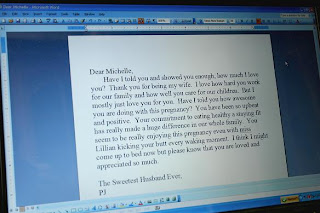 Dear Michelle,
Have I told you and showed you enough, how much I love
you?  Thank you for being my wife.  I love how hard you work
for our family and how well you care for our children.  But I
mostly just love you for you.  Have I told you how awesome
you are doing with this pregnancy?  You have been so upbeat
and positive.  Your commitment to eating healthy a staying fit
has really made a huge difference in our whole family.  You
seem to be really enjoying this pregnancy even with miss
Lillian kicking your butt every waking moment.  I think I might
come up to bed now but please know that you are loved and
appreciated so much.
The Sweetest Husband Ever,
PJ